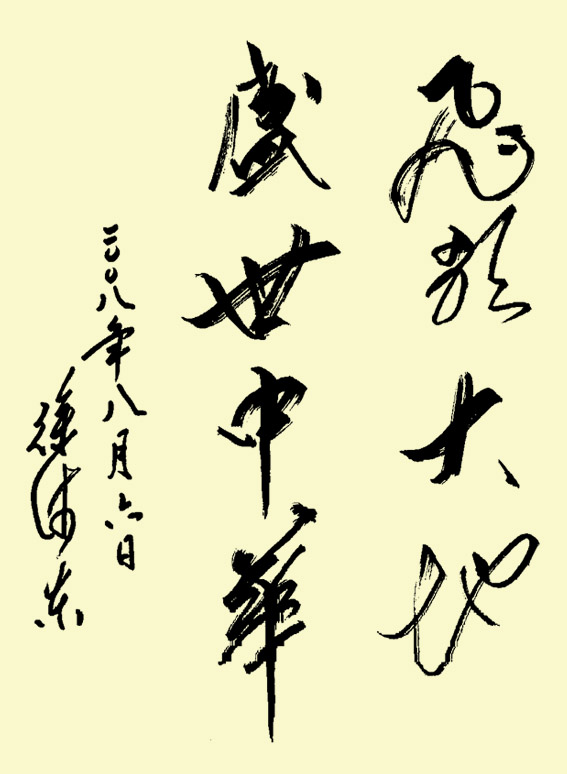 飞歌大地
盛世中華
二〇〇八年八月六日
徐沛东